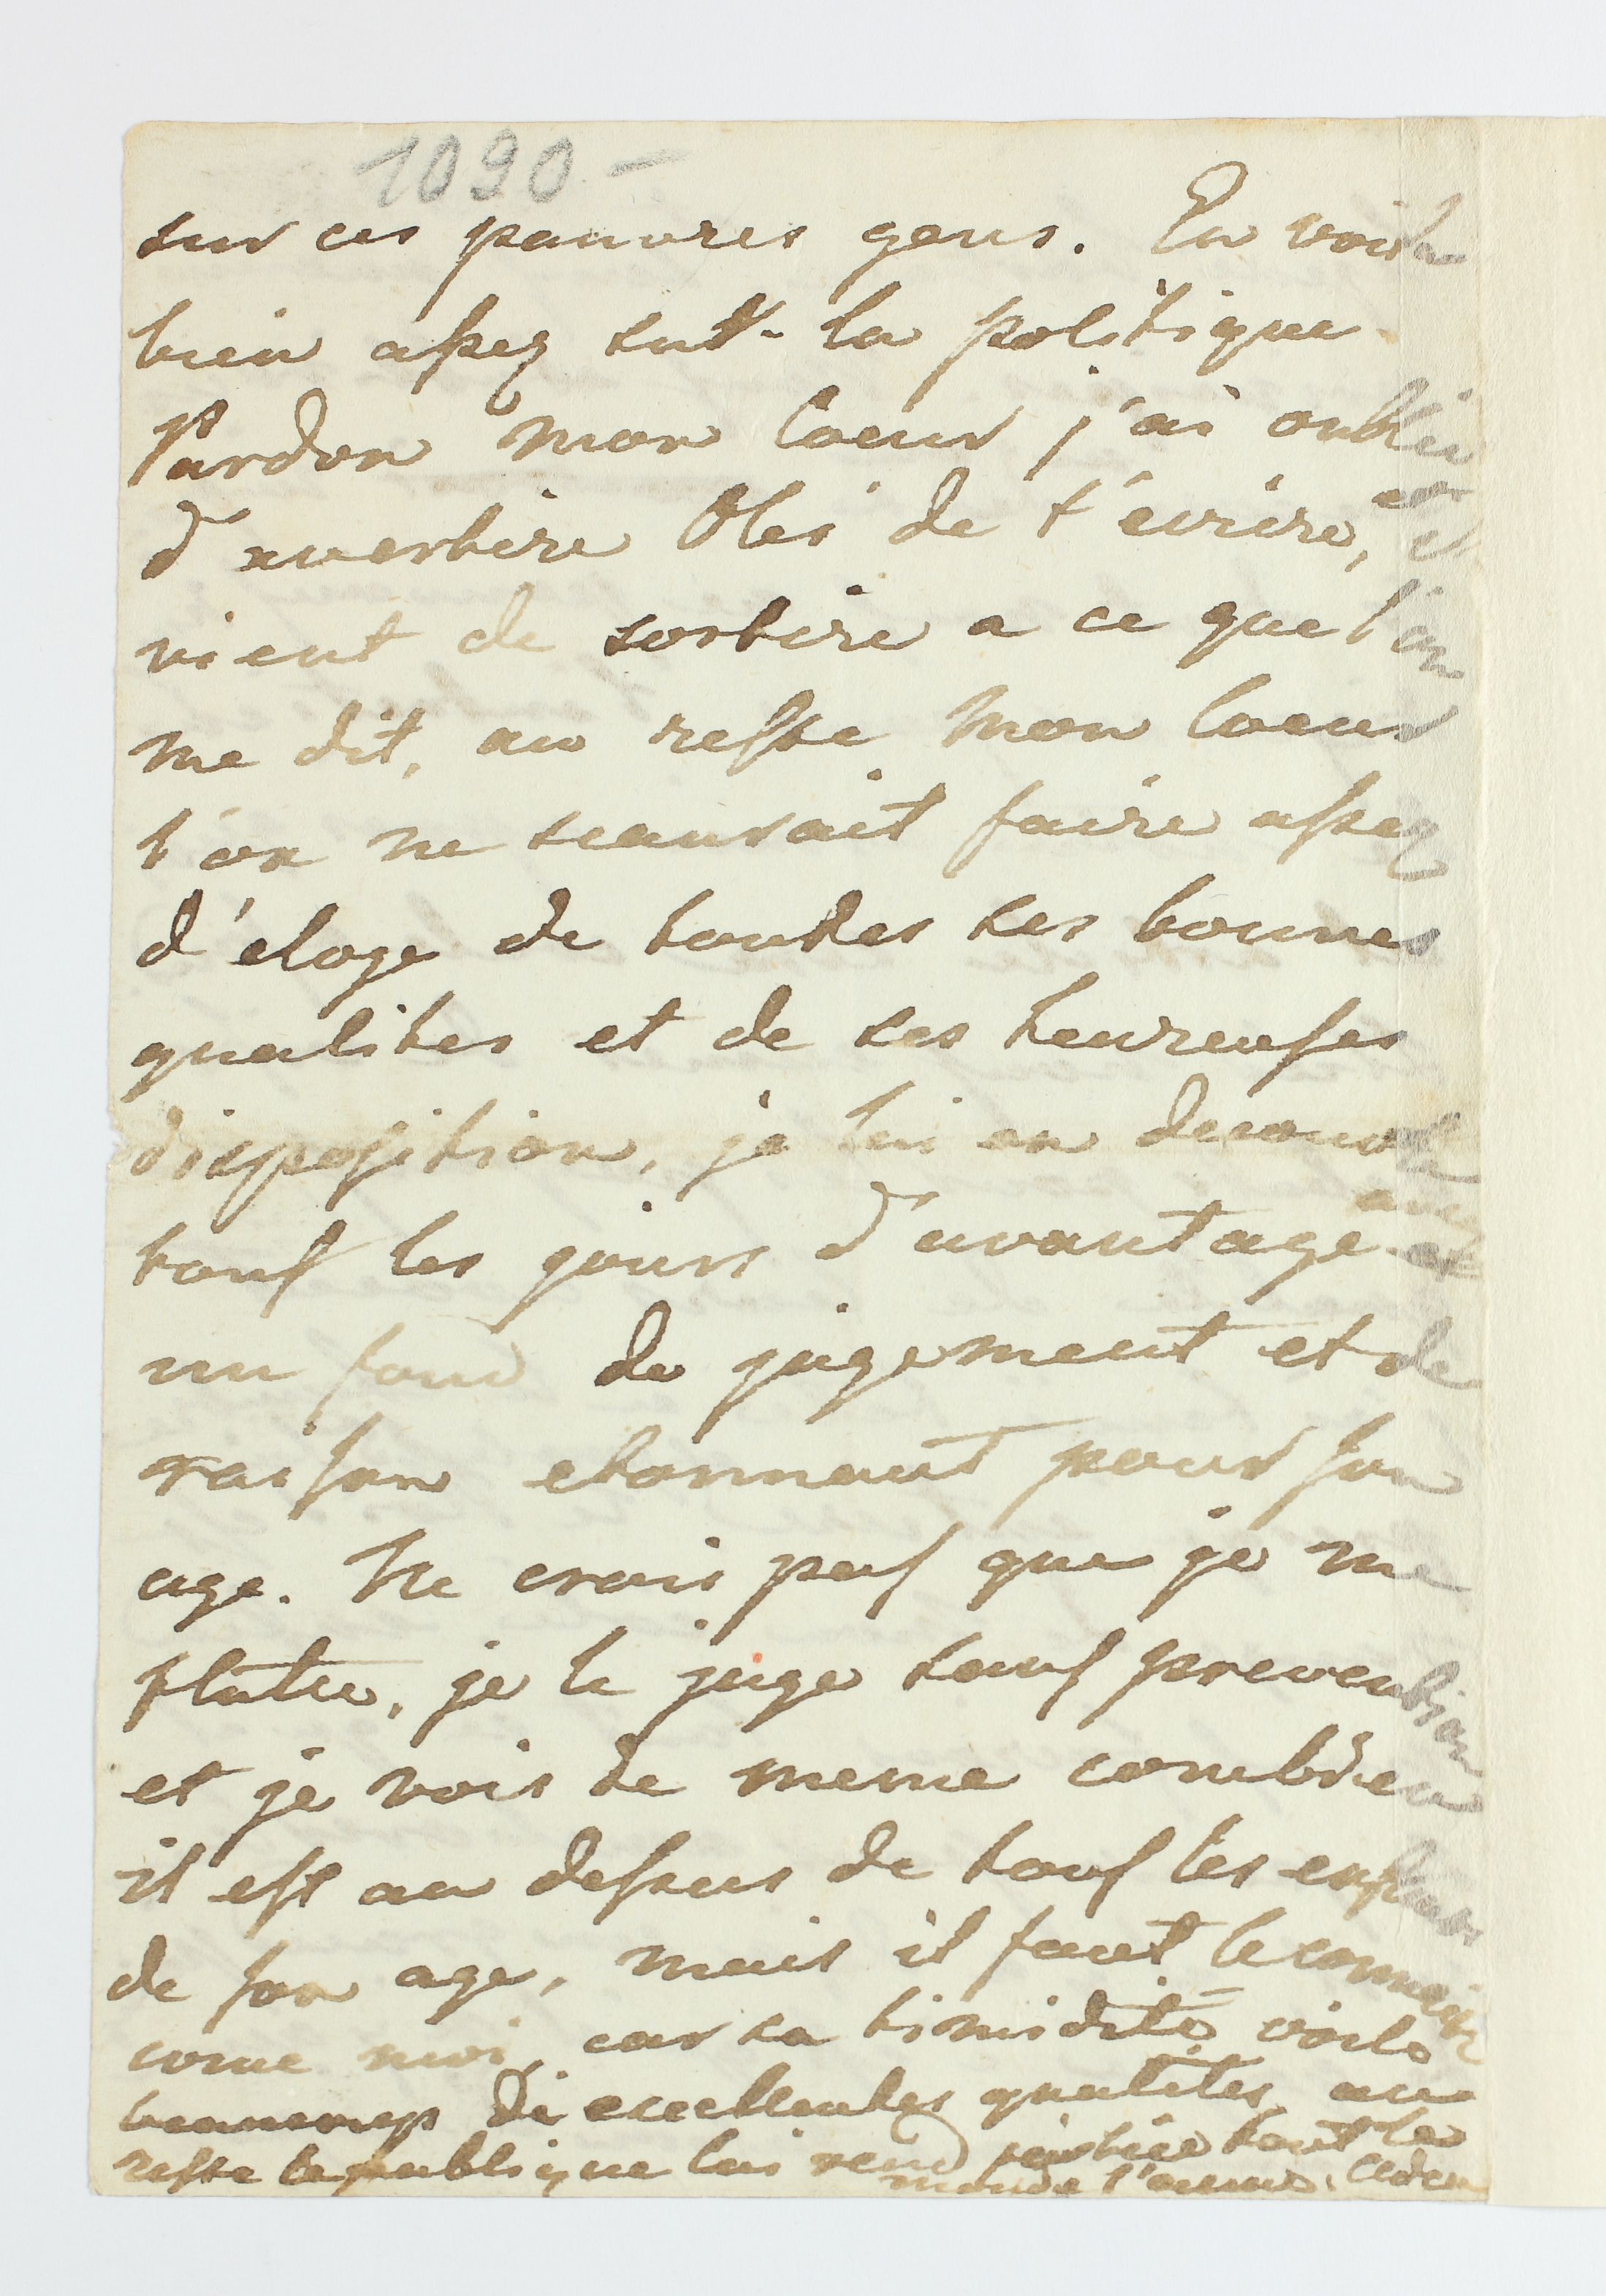 1090 -
sur ces pauvres gens. En voila
bien assez sut la politique
Pardon mon Coeur j'ai oublié
d'avertire Oles de t'ecrire, et il
vient de sortire a ce que l'on
me dit, au reste mon Coeur
l'on ne scaurait faire assez
d'eloge de toutes ses bonnes
qualites et de ses heureuses
disposition, je lui en decouvre
tous les jours d'avantage avec
un fond de jugement et de
raison etonnant pour son
age. Ne crois pas que je me
flatte, je le juge sans prevention
et je vois de meme combien
il est au dessus de tous les enfants
de son age, mais il faut le connaitre
come moi, car sa timidité voile
beaucoup de excellentes qualités au
reste le publique lui rend justice tout le
monde l'aime. Adieu